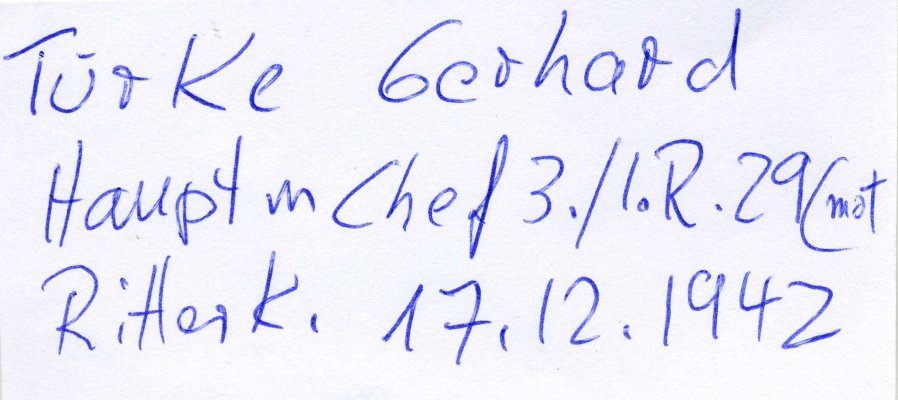 Türke Gerhard
Hauptm Chef 3./I.R.29(mot
Ritterk. 17.12.1942